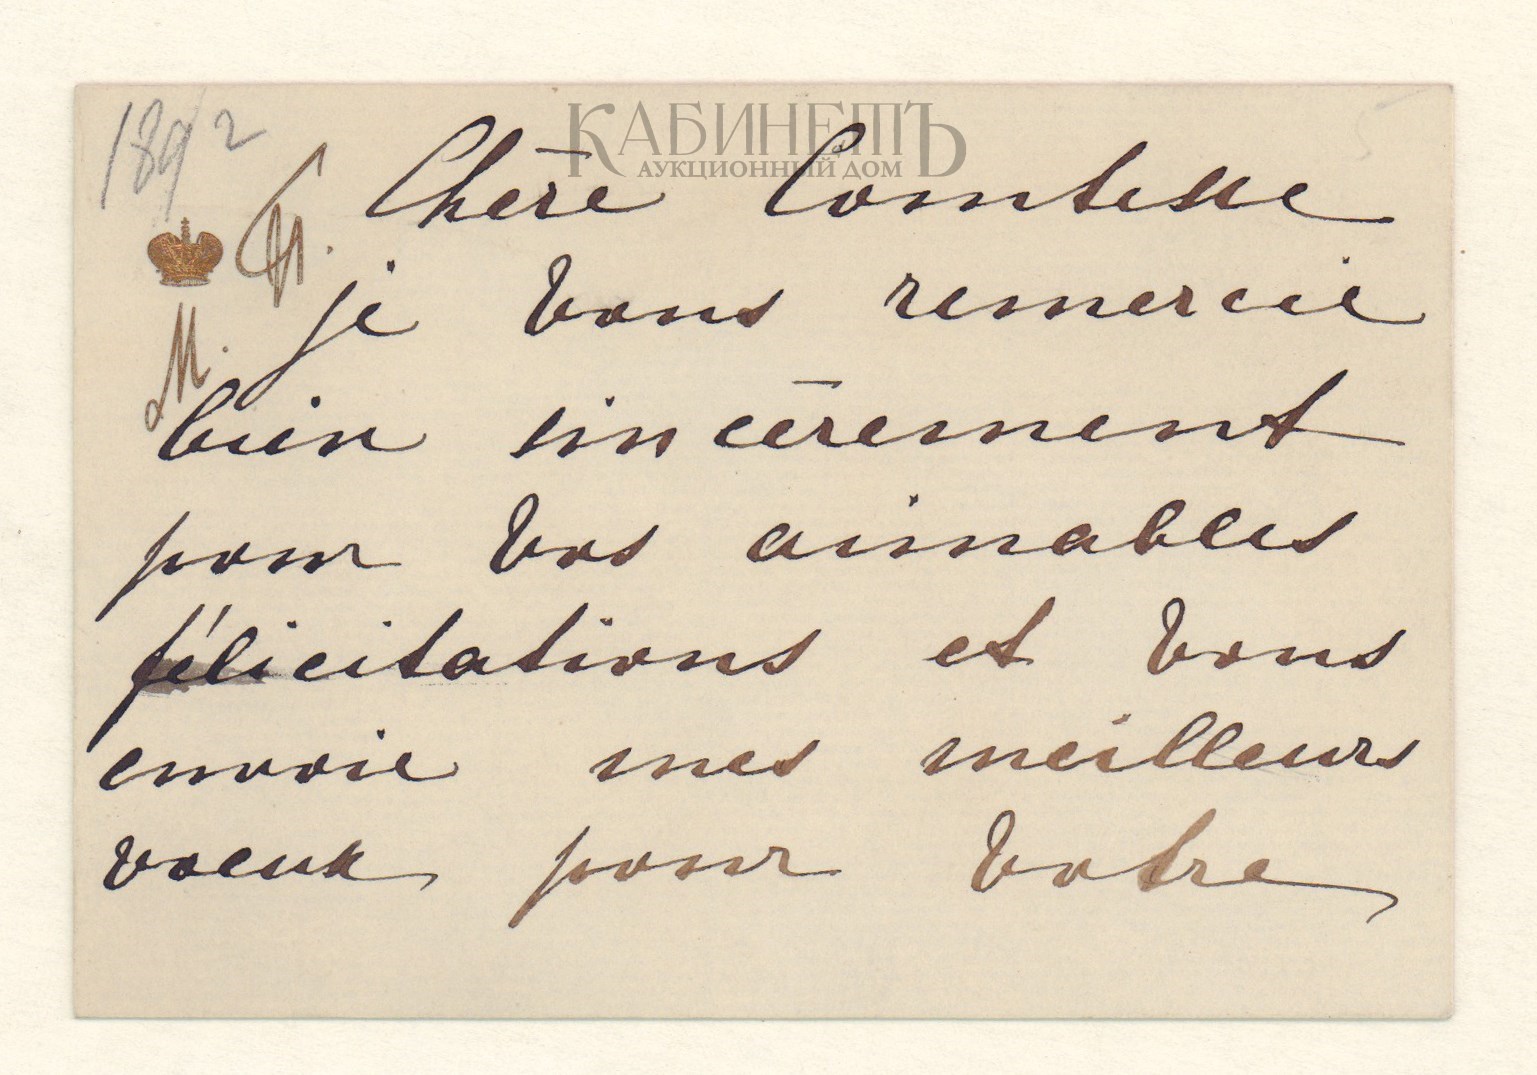 1892
КАБИНЕТЪ
АУКЦИОННЫЙ ДОМ
Chère Comtesse
je vous remercie
M.
bien sincèrement
pour vos aimables
félicitations et vous
envoie mes meilleurs
voeux pour votre